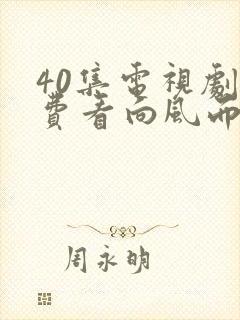 40集電視劇
費看向风而
周永明